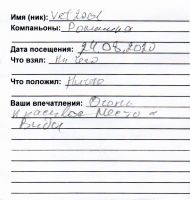 Имя (ник): Vet2001
Компаньоны: Ромашка
Дата посещения: 24.08.2020
Что взял: Ничего
Что положил: Ничего
Ваши впечатления: Очень
красивое место и
Виды